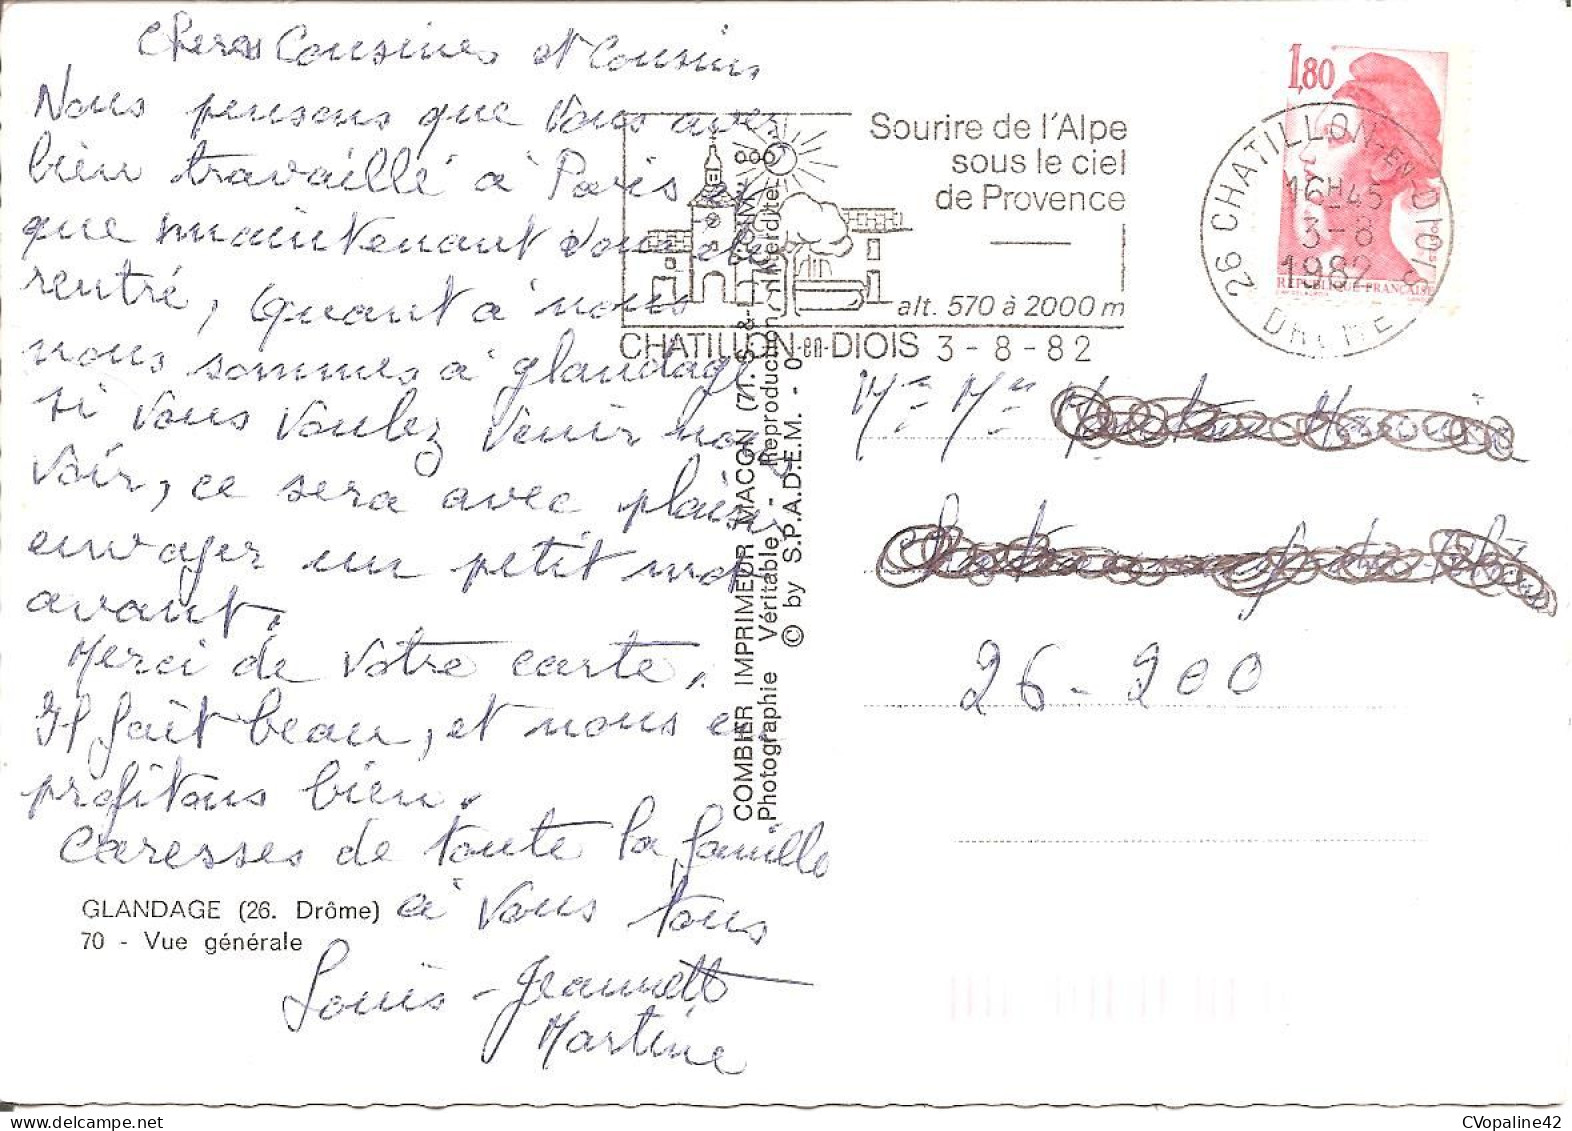 Cheres Cousines et Cousins
Nous pensons que vous avez
bien travaillé à Paris et
que maintenant vous etes
rentré, Quant a nous
nous sommes à glandage
si vous voulez venir nous
voir, ce sera avec plaisir
envoyer un petit mot
avant.
Merci de votre carte.
Il fait beau, et nous en
profitons bien.
Caresses de toute la famille
à vous tous
Louis - Jeannette
Martine
GLANDAGE (26. Drôme)
70 - Vue générale
COMBIER IMPRIMEUR MACON (71. S.-&-L.)
Photographie Véritable - Reproduction interdite
© by S.P.A.D.E.M. - 0
Sourire de l'Alpe
sous le ciel
de Provence
alt. 570 à 2000 m
CHATILLON-en-DIOIS 3 - 8 - 82
1,80
REPUBLIQUE FRANCAISE
26 CHATILLON-EN-DIOIS
16H45
3-8
1982
DROME
Mr Mme
26-200
CVopaline42